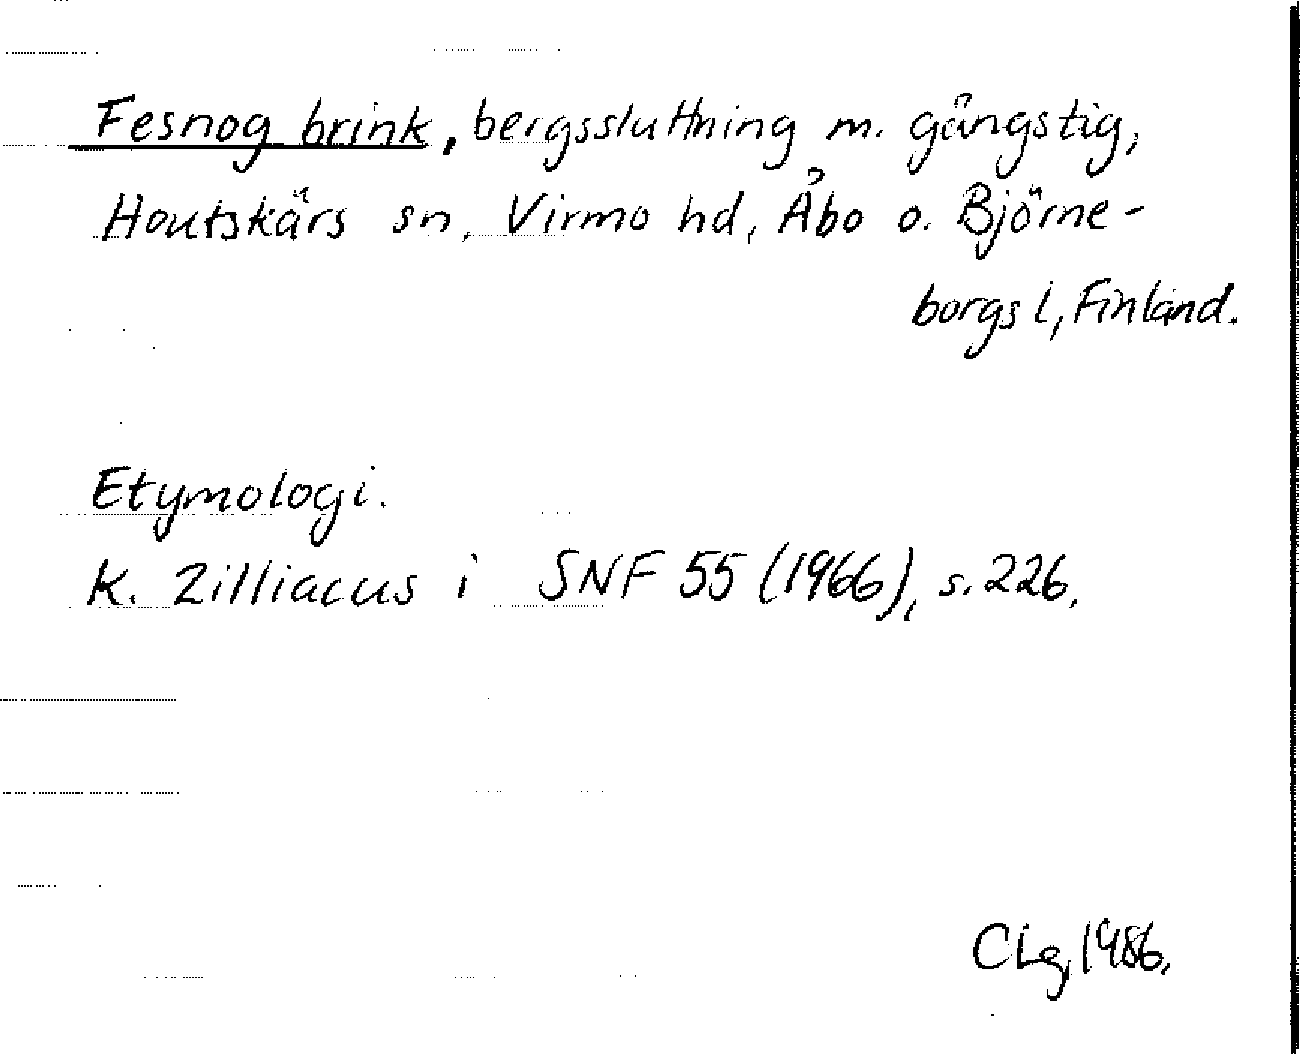 Fesnog brink, bergssluttning m. gångstig,
Houtskärs sn, Virmo hd, Åbo o. Björne-
borgs l, Finland.
Etymologi.
K. Zilliacus i SNF 55 (1966), s. 226.
CLg, 1986.